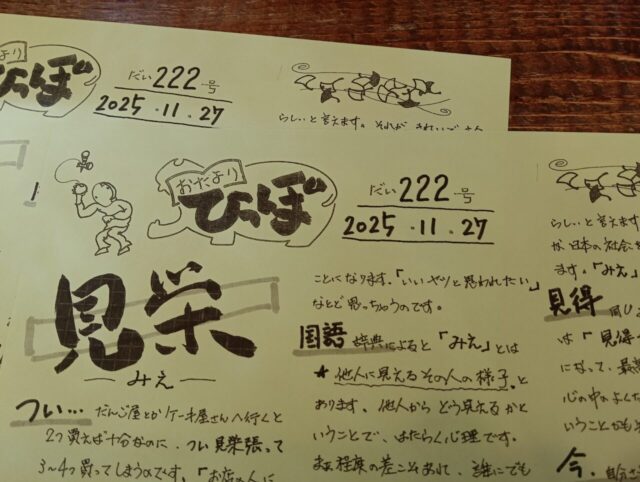 たより
ひっぽ
だい222号
2025.11.27
らしいと言えます。それが
おたより
ひっぽ
だい222号
2025.11.27
見栄
―みえ―
つい… だんご屋とかケーキ屋さんへ行くと
2つ買えば十分なのに、つい見栄張って
3～4つ買ってしまうのです。「お店の人に
ことになります。「いいヤツと思われたい」
などと思っちゃうのです。
国語辞典によると「みえ」とは
★他人に見えるその人の様子。と
あります。他人からどう見えるかと
いうことで、はたらく心理です。
まあ程度の差こそあれ、誰にでも
らしいと言えます
が日本の社会を
ます。「みえ」
見得 同じ
は「見得
になって、最
心の中のよくな
いうことかもそ
今、自分